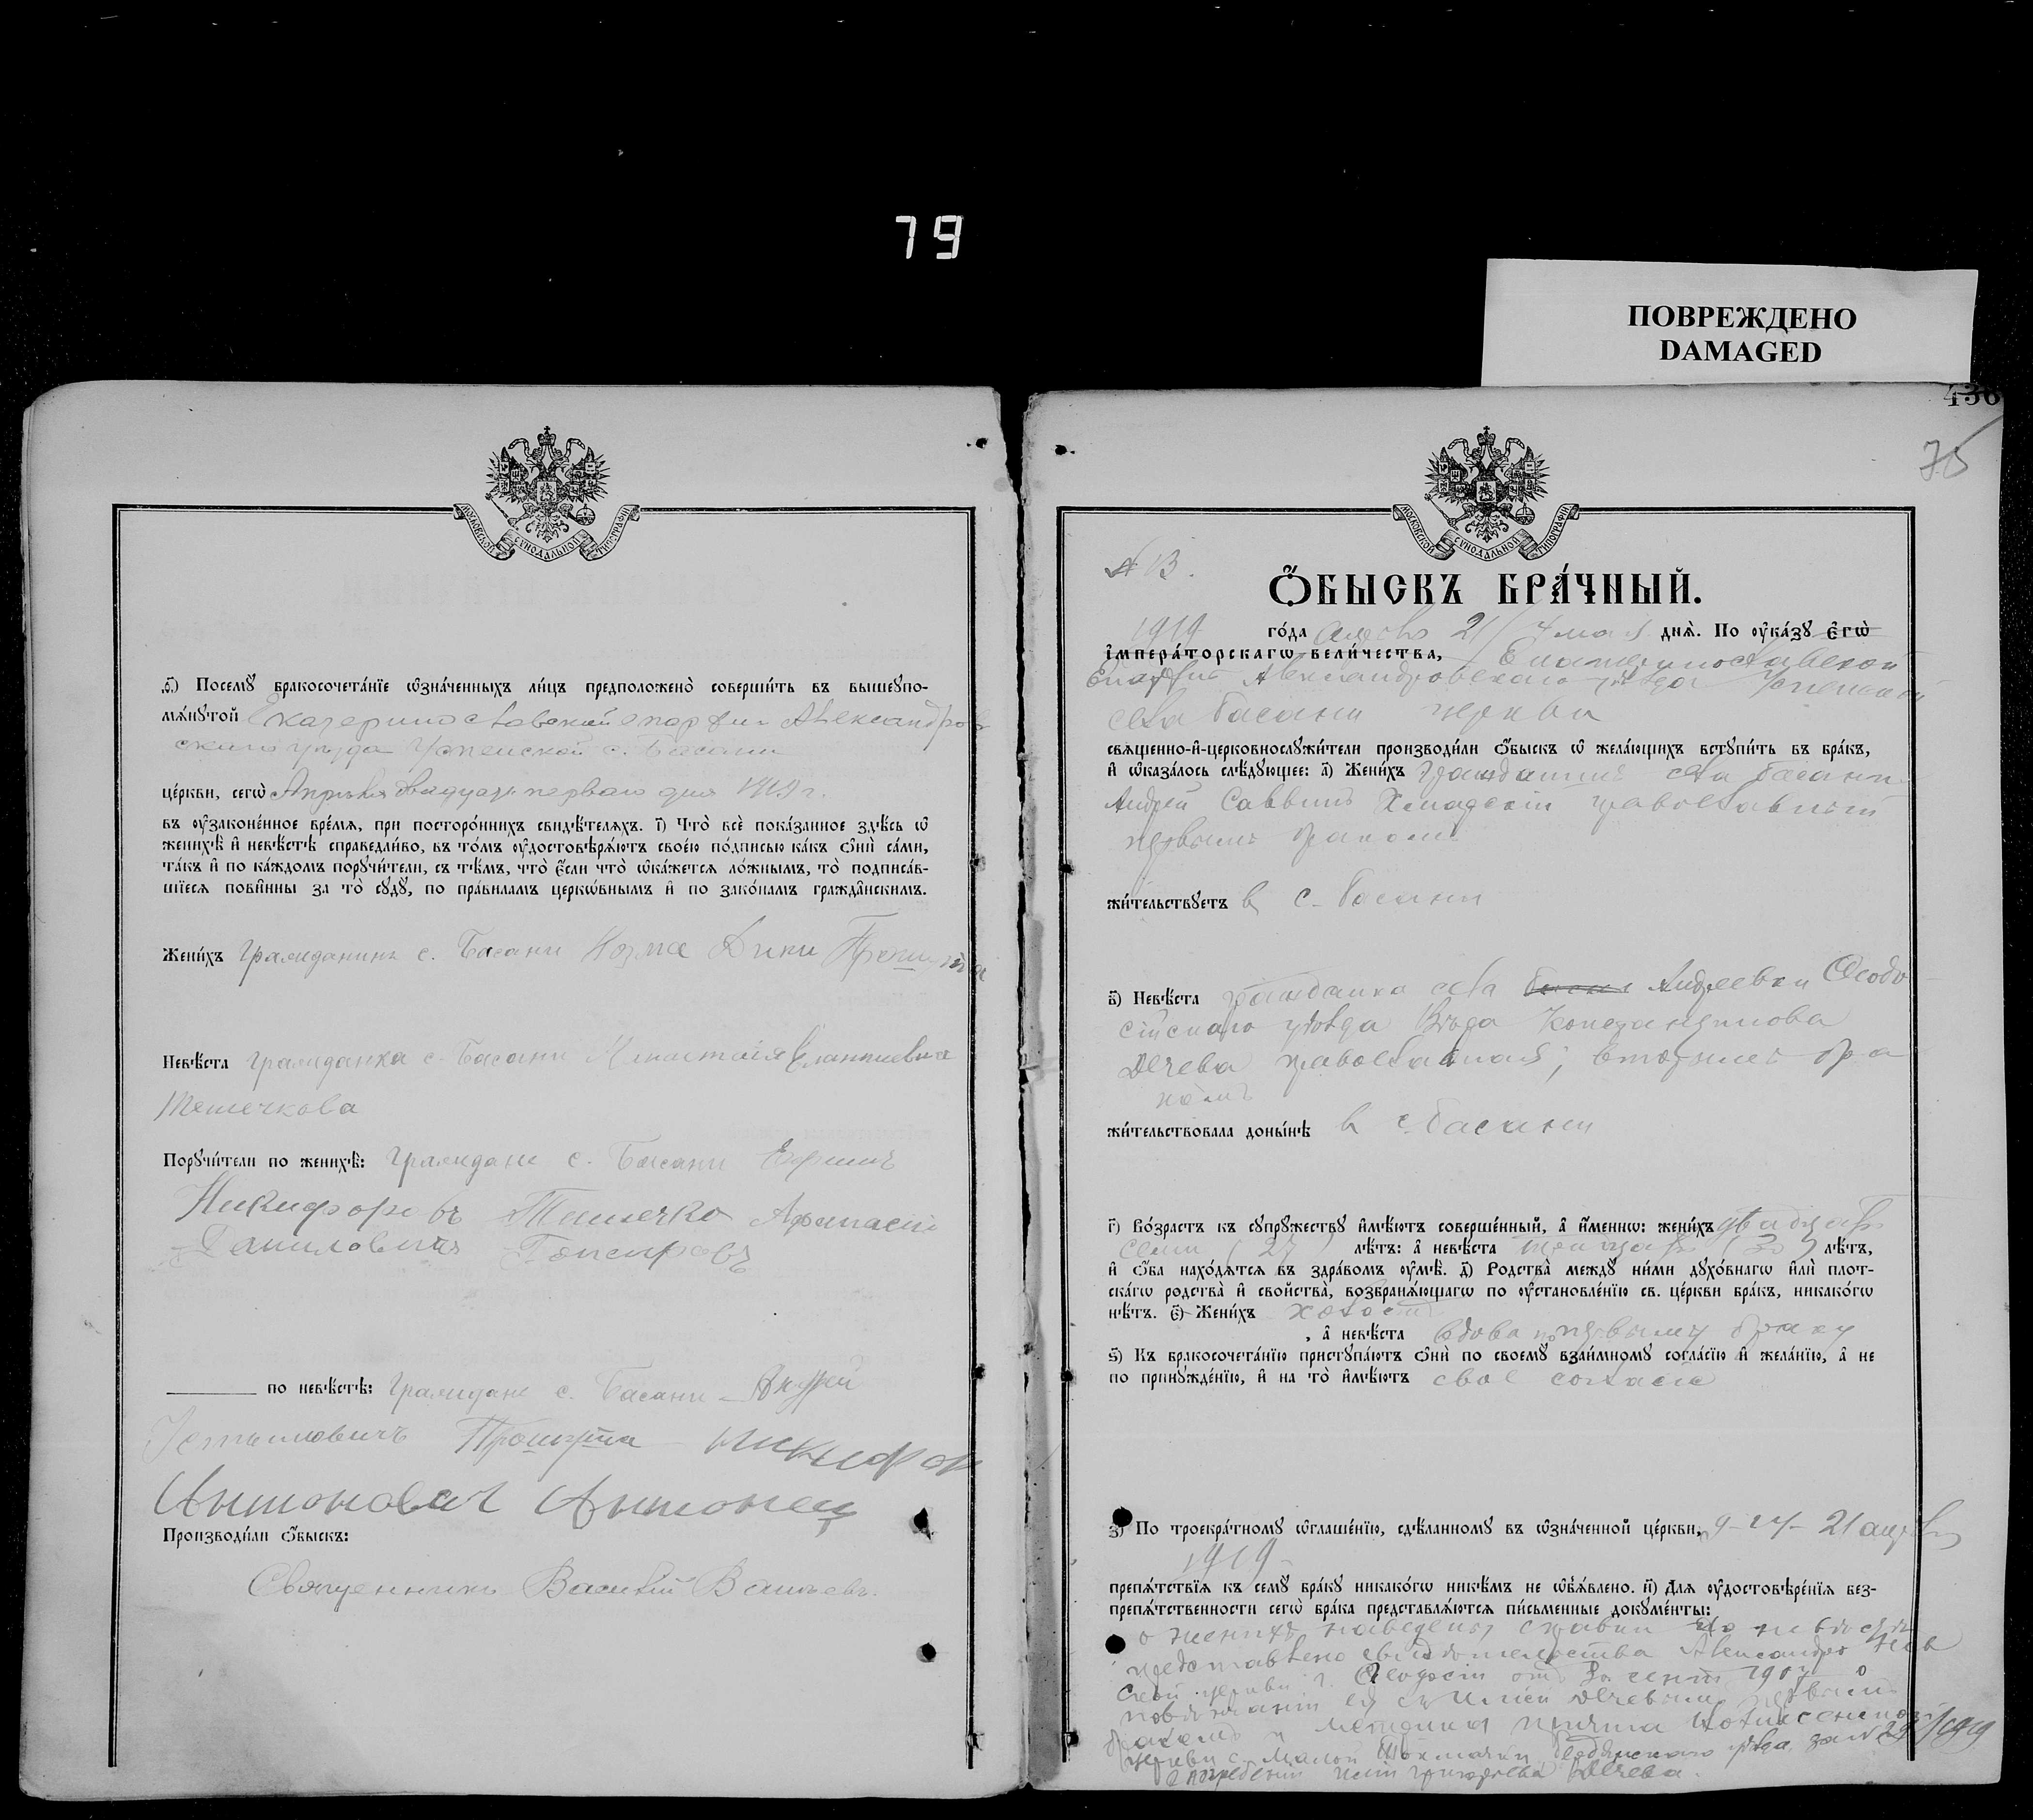 79
ПОВРЕЖДЕНО
DAMAGED
МОСКОВСКОЙ СѴНОДАЛЬНОЙ ТИПОГРАФІИ
ѳ҃) Посемꙋ бракосочета́нїе ѡ҆зна́ченныхъ ли́цъ предположено̀ соверши́ть въ вышеупо-
мѧ́нутой Екатеринославской епархіи Александров
скаго уѣзда Успенской с. Басани
це́ркви, сегѡ̀ Апрѣля двадцать перваго дня 1919 г.
въ ѹ҆зако́ненное вре́мѧ, при посторо́ннихъ свидѣ́телѧхъ. і҃) Что̀ всѐ пока́занное здѣ́сь ѡ҆
женихѣ̀ и҆ невѣ́стѣ справедли́во, въ то́мъ ѹ҆достовѣрѧ́ютъ свое́ю по́дписью ка́къ ѻ҆нѝ са́ми,
та́къ и҆ по ка́ждомъ поручи́тели, съ тѣ́мъ, что̀ є҆́сли что̀ ѡ҆ка́жетсѧ ло́жнымъ, то̀ подписа́в-
шїесѧ пови́нны за то̀ сꙋдꙋ̀, по пра́виламъ церкѡ́внымъ и҆ по зако́намъ гражда́нскимъ.
Жени́хъ Гражданинъ с. Басани Козма
Невѣ́ста гражданка с. Басани
Тешечкова
Порꙋчи́тели по женихѣ̀: Граждане с. Басани Ефимъ
Никифоровъ Тешечко Афанасій
Даниловичъ
по невѣ́стѣ: Граждане с. Басани - Андрей
Устимовичъ Никифор
Антонович Антонец
Производи́ли ѻ҆́быскъ:
Священникъ Василій
436
75
МОСКОВСКОЙ СѴНОДАЛЬНОЙ ТИПОГРАФІИ
№ 13.
Ѻ҆́БЫСКЪ БРА́ЧНЫЙ.
1919 го́да апрѣля 21/4 мая днѧ̀. По ѹ҆ка́зꙋ є҆гѡ̀
і҆мпера́торскагѡ вели́чества, Екатеринославской
Епархіи Александровскаго уѣзда Успенской
села Басани церкви
свѧще́нно-и҆-церковнослꙋжи́тели производи́ли ѻ҆́быскъ ѡ҆ жела́ющихъ встꙋпи́ть въ бра́къ,
и҆ ѡ҆каза́лось слѣ́дующее: а҃) Жени́хъ гражданинъ села Басани
Андрей Саввинъ православный
первымъ бракомъ
жи́тельствꙋетъ в с. Басани
в҃) Невѣ́ста гражданка села Андреевки Ѳеодо
сійскаго уѣзда Вѣра Константинова
Дечева православная; вторымъ бра
комъ
жи́тельствовала доны́нѣ в с. Басани
г҃) Во́зрастъ къ сꙋпрꙋ́жествꙋ и҆мѣ́ютъ соверше́нный, а҆ и҆́менно: жени́хъ двадцать
семи (27) лѣ́тъ: а҆ невѣ́ста тридцать (30) лѣ́тъ,
и҆ ѻ҆́ба нахо́дѧтсѧ въ здра́вомъ ѹ҆мѣ̀. д҃) Родства̀ междꙋ̀ ни́ми дꙋхо́внагѡ и҆лѝ плот-
ска́гѡ родства̀ и҆ сво́йства̀, возбранѧ́ющагѡ по ѹ҆становле́нїю св. це́ркви бра́къ, никако́гѡ
нѣ́тъ. є҃) Жени́хъ холостъ
, а҆ невѣ́ста вдова по первому браку
ѕ҃) Къ бракосочета́нїю пристꙋпа́ютъ ѻ҆нѝ по своемꙋ̀ взаи́мномꙋ согла́сїю и҆ жела́нїю, а҆ не
по принꙋжде́нїю, и҆ на то̀ и҆мѣ́ютъ свое согласіе
з҃) По троекра́тномꙋ ѡ҆глаше́нїю, сдѣ́ланномꙋ въ ѡ҆зна́ченной це́ркви, 9-14-21 апрѣля
1919
препѧ́тствїѧ къ семꙋ̀ бра́кꙋ никако́гѡ никѣ́мъ не ѡ҆б̾ѧ́влено. и҃) Длѧ ѹ҆достовѣре́нїѧ без-
препѧ́тственности сегѡ̀ бра́ка представлѧ́ютсѧ пи́сьменные докꙋме́нты:
о женихѣ наведены справки
представлено свидѣтельства Александро Нев
ской церкви г. Ѳеодосіи от
повѣнчаніи ея съ Дечевымъ первымъ
бракомъ и
церкви с. Малой Токмачки Бердянскаго уѣзда за № 29 1919
о погребеніи Дечева.